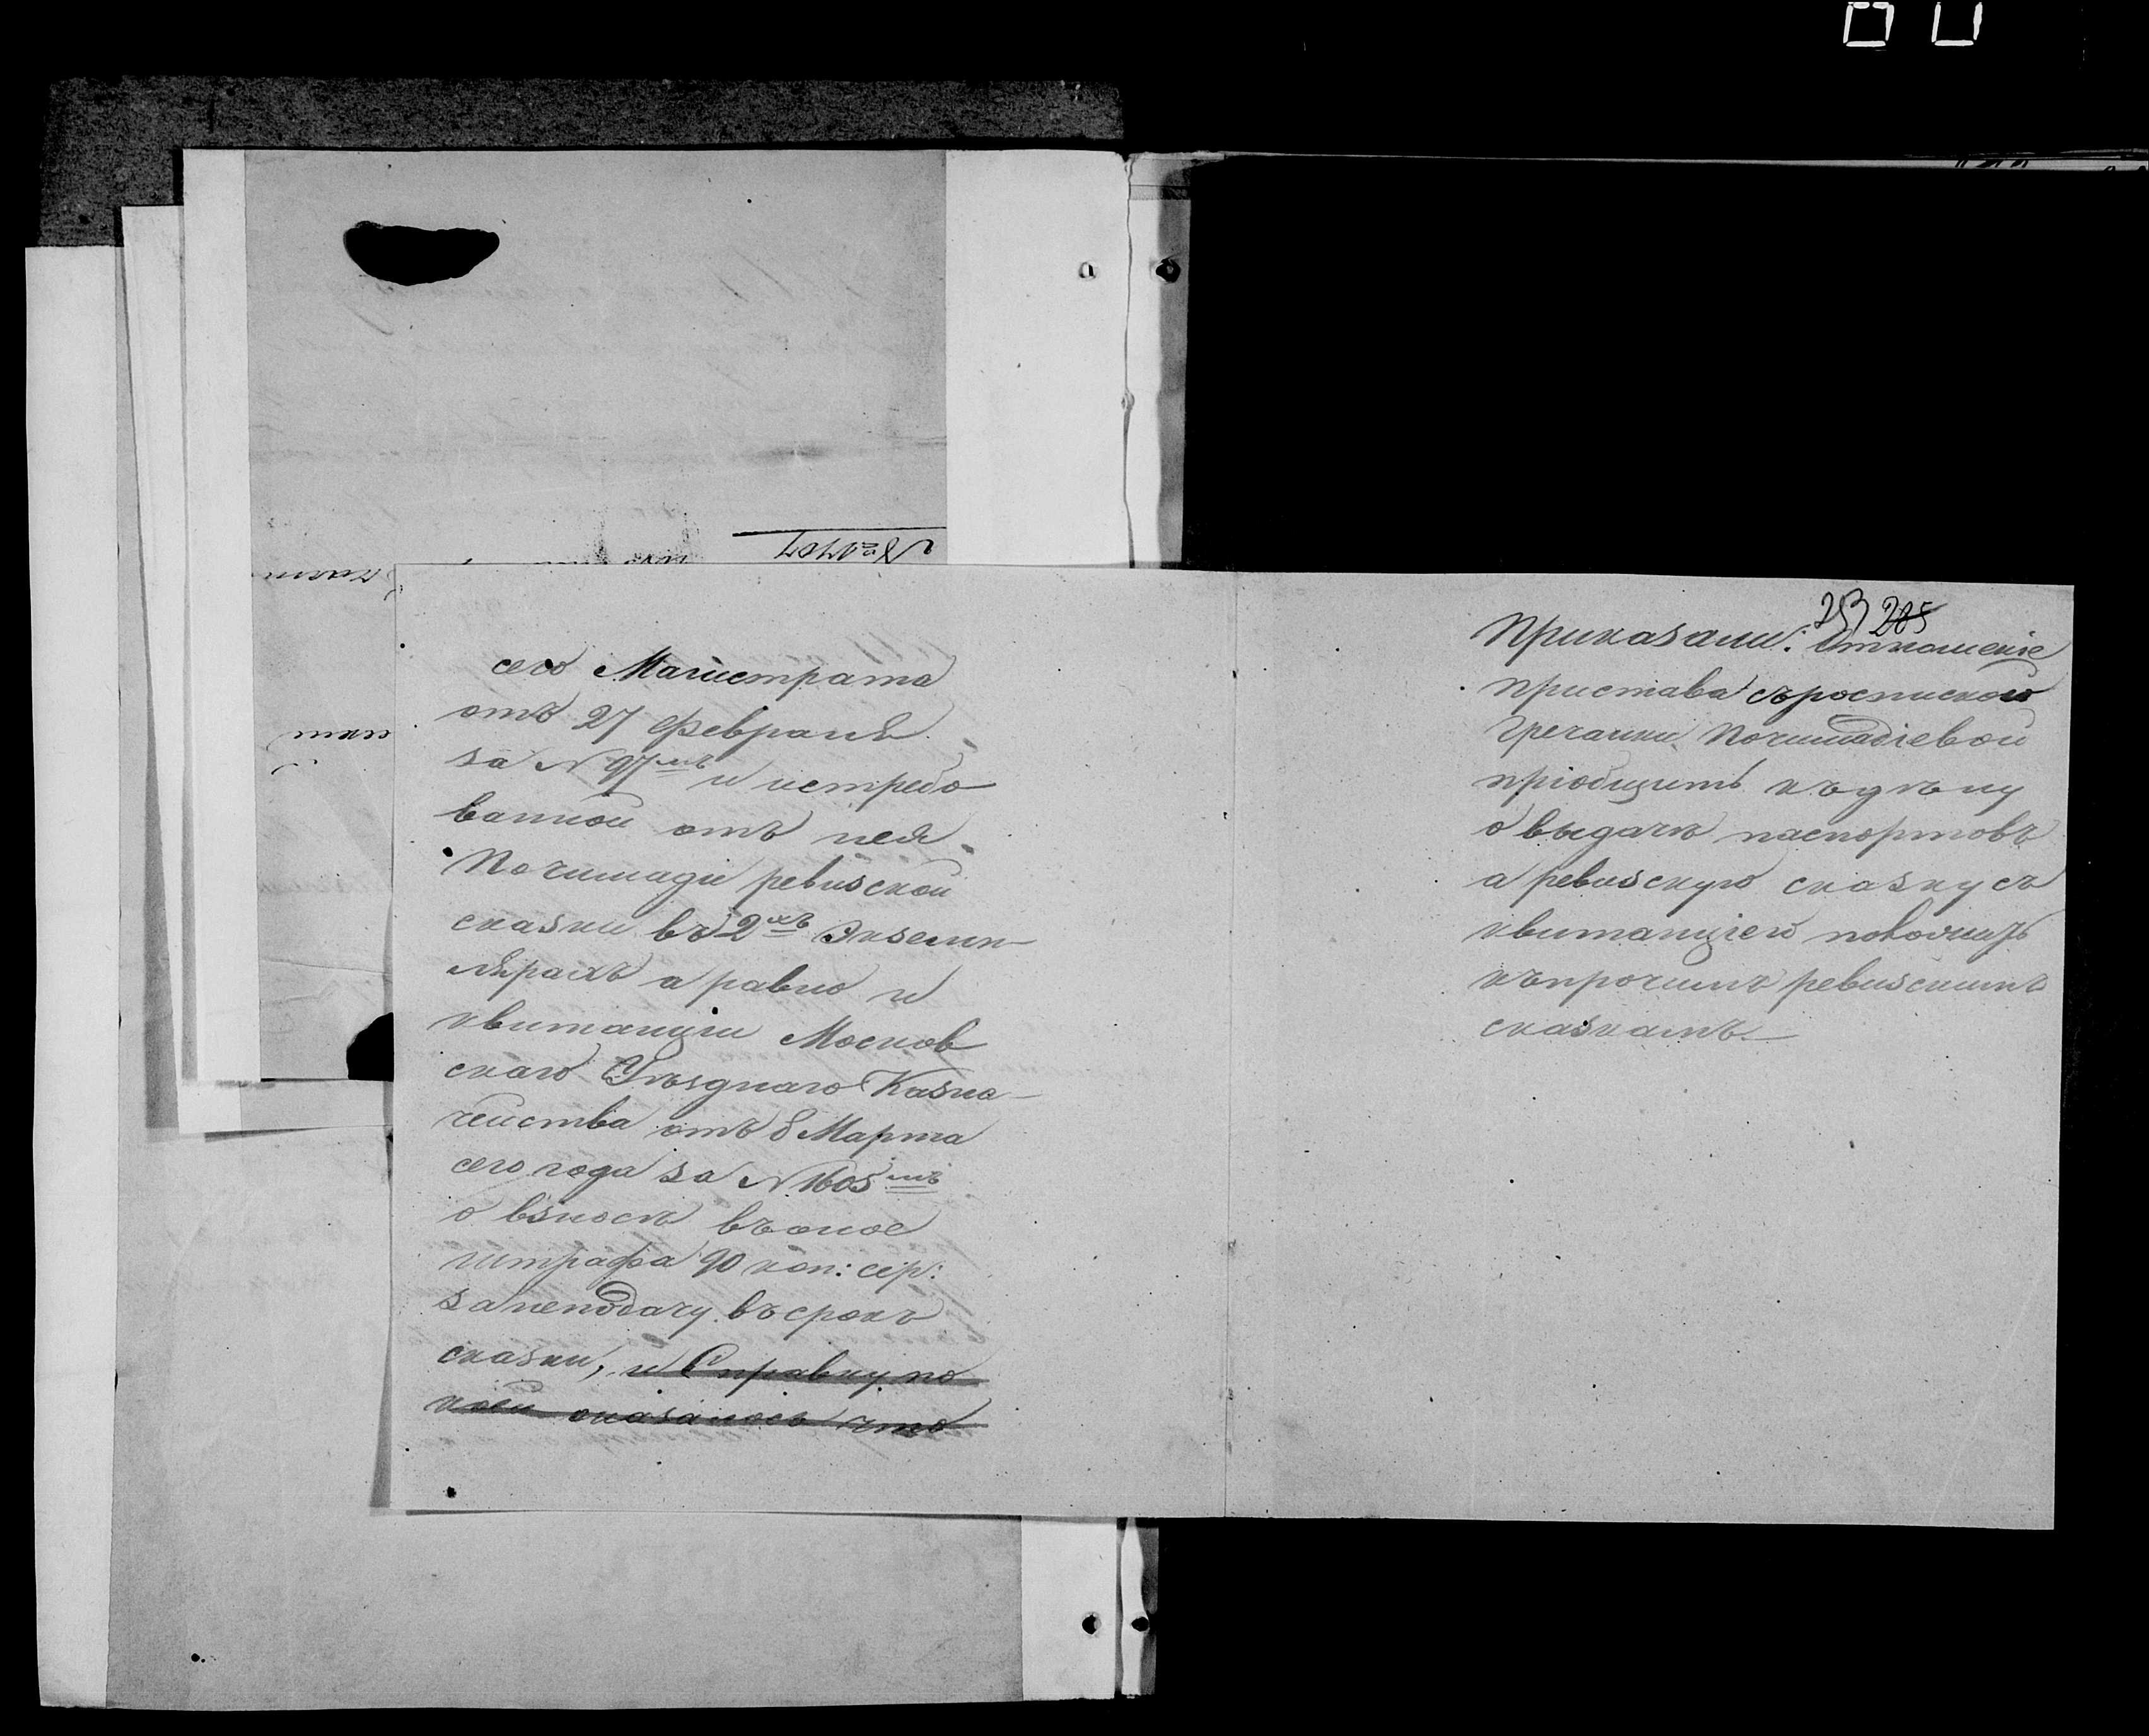 сего Магистрата
отъ 27 Февраля
за N 97мъ и истребо
ванной отъ нея
Почимади ревизской
сказки въ 2хъ Экземп-
лярахъ а равно и
квитанции Москов
скаго Уѣзднаго Казна-
чейства отъ 8 Марта
сего года за N 1605мъ
о взносѣ въ оное
штрафа 90 коп: сер:
за неподачу въ срокъ
сказки, и Справку по
коей оказалось что
253 285
Приказали: Отношеніе
пристава съ роспискою
Гречанки Почимадіевой
пріобщить къ дѣлу
о выдачѣ паспортовъ
а ревизскую сказку съ
квитанціею
къ прочимъ ревизскимъ
сказкамъ.—